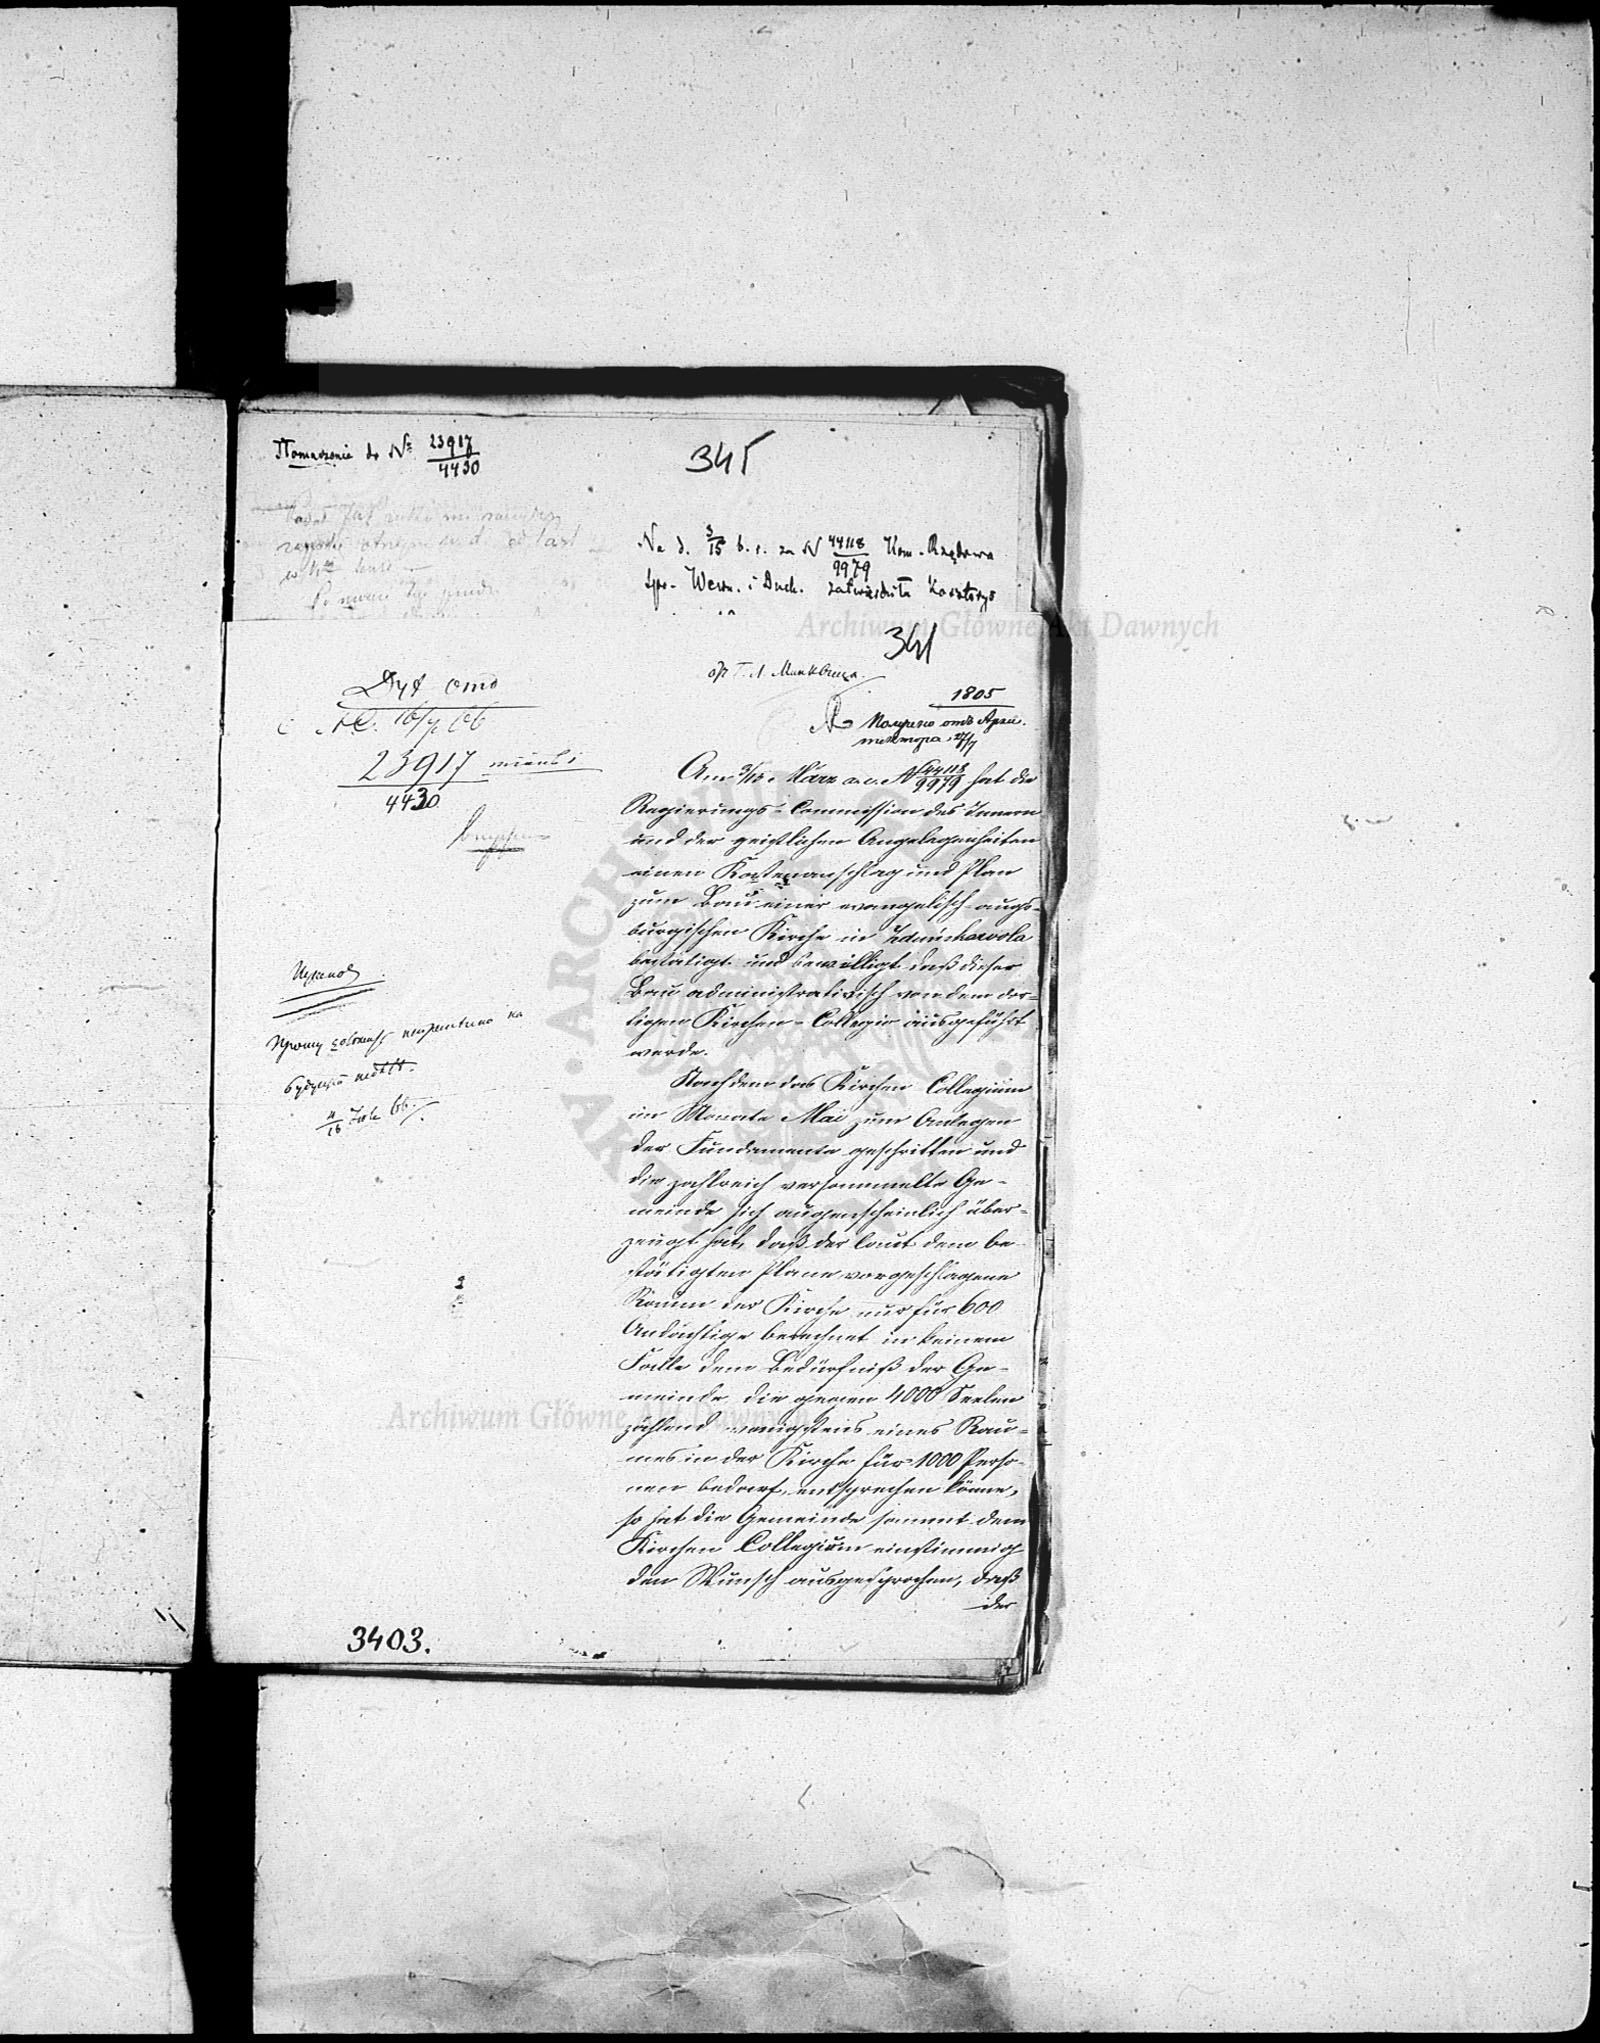 Tłomaczenie do Nr 23917/4430
345
Na d. 3/15 b. r. za N 44118/9979 Kom. Rządowa
Spr. Wewn. i Duch. zatwierdziła Kosztorys
Archiwum Główne Akt Dawnych
341
1805
Получено отъ Архи-
тектора 27/7
16/7 66
23917
4430
Am 3/15. März a. c. N 44118/9979 hat die
Regierungs-Commission des Innern
und der geistlichen Angelegenheiten
einen Kostenanschlag und Plan
zum Bau einer evangelisch-augs-
burgischen Kirche in Zduńskawola
bestätigt und bewilligt daß dieser
Bau administrativisch von dem dor-
tigen Kirchen-Collegio ausgeführt
werde.
Nachdem das Kirchen Collegium
im Monate Mai zum Anlegen
der Fundamente geschritten und
die zahlreich versammelte Ge-
meinde sich augenscheinlich über-
zeugt hat, daß der laut dem be-
stätigten Plane vorgeschlagene
Raum der Kirche nur für 600
Andächtige berechnet in keinem
Falle dem Bedürfniß der Ge-
meinde die gegen 4000 Seelen
zählend wenigstens eines Rau-
mes in der Kirche für 1000 Perso-
nen bedarf, entsprechen könne,
so hat die Gemeinde sammt dem
Kirchen Collegium einstimmig
den Wunsch ausgesprochen, daß
der
Прошу
на
Archiwum Główne Akt Dawnych
3403.